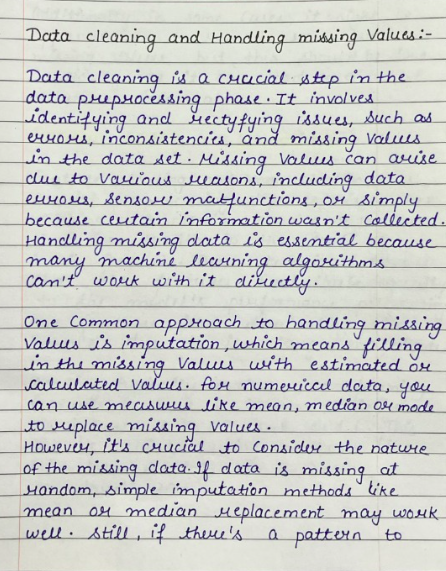 Data cleaning and Handling missing Values:-
Data cleaning is a crucial step in the
data preprocessing phase. It involves
identifying and rectyfying issues, such as
errors, inconsistencies, and missing Values
in the data set. Missing Values can arise
due to Various reasons, including data
errors, sensor malfunctions, or simply
because certain information wasn't collected.
Handling missing data is essential because
many machine learning algorithms
can't work with it directly.
One Common approach to handling missing
Values is imputation, which means filling
in the missing Values with estimated or
calculated Values. for numerical data, you
can use measures like mean, median or mode
to replace missing Values.
However, it's crucial to Consider the nature
of the missing data. If data is missing at
random, simple imputation methods like
mean or median replacement may work
well. Still, if there's a pattern to